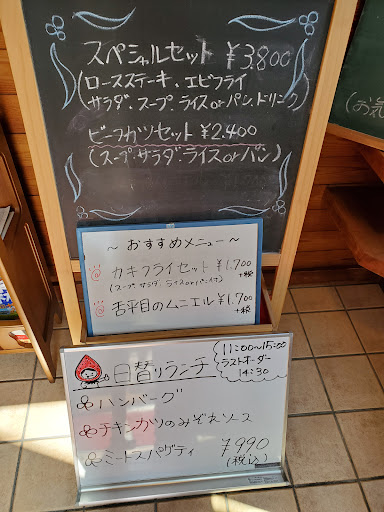 スペシャルセット ¥3.800
(ロースステーキ、エビフライ
サラダ、スープ、ライス or パン、ドリンク)
ビーフカツセット ¥2.400
(スープ・サラダ・ライス or パン)
(お気
～おすすめメニュー～
カキフライセット ¥1.700
(スープ サラダ ライス or パン付) +税
舌平目のムニエル ¥1.700
+税
日替りランチ
11:00～15:00
ラストオーダー
14:30
ハンバーグ
チキンカツのみぞれソース
ミートスパゲティ
¥990
(税込)